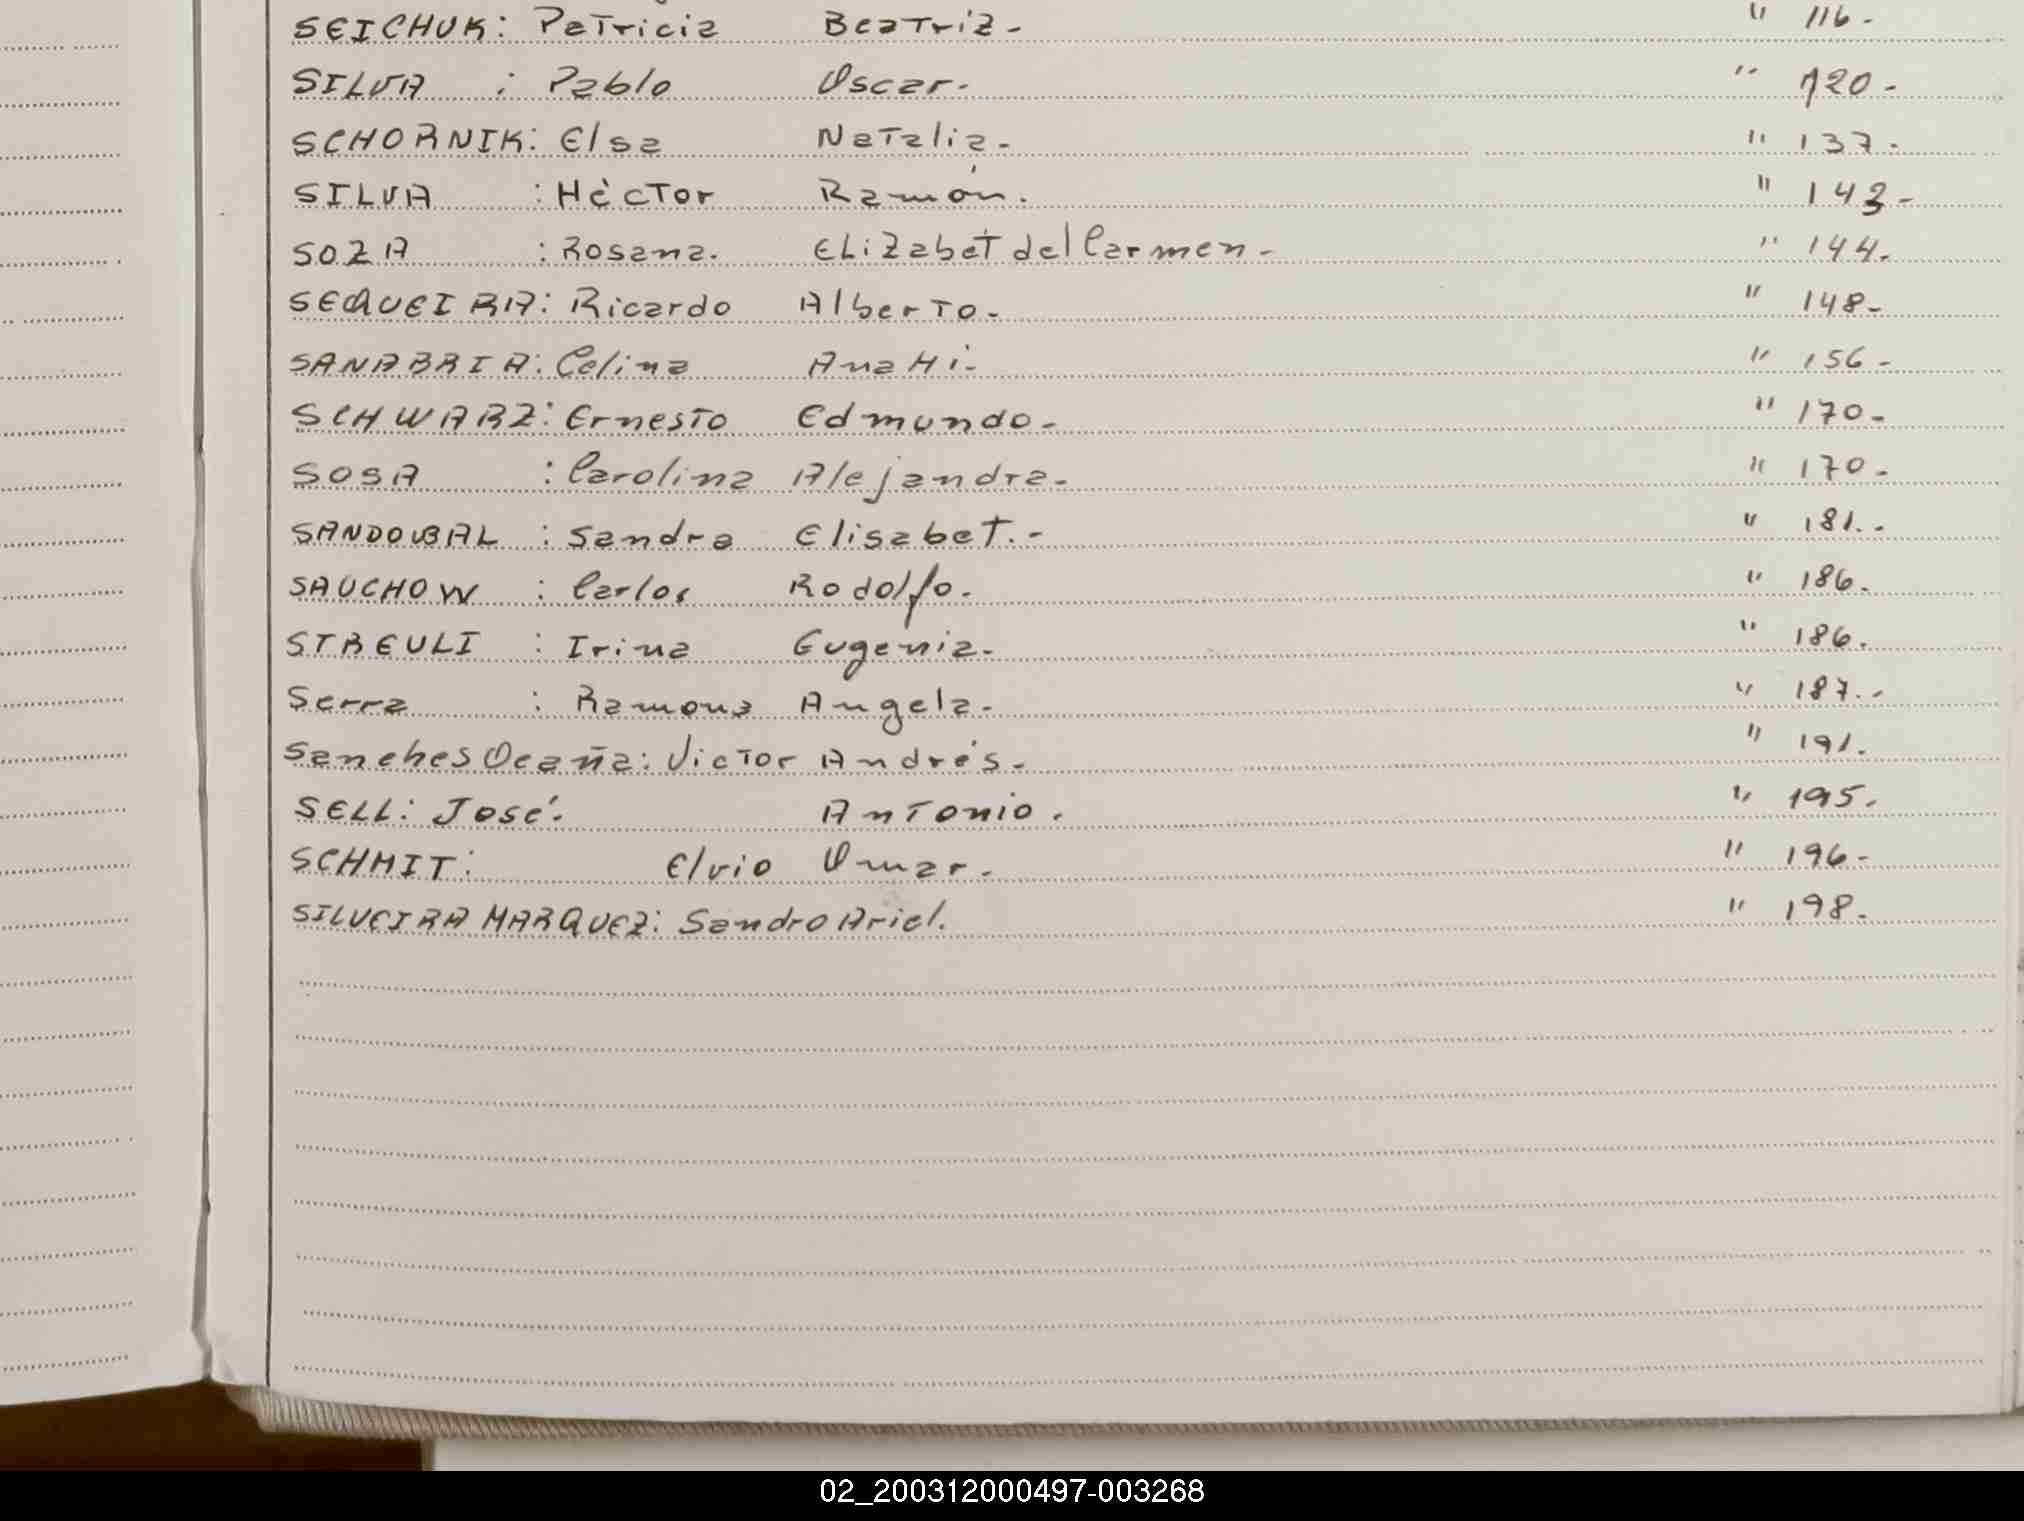 SEICHUK: Patricia Beatriz- " 116-
SILVA : Pablo Oscar- " 120-
SCHORNIK: Elsa Natalia- " 137-
SILVA : Héctor Ramón. " 143-
SOZA : Rosana. ELiZabét del Carmen- " 144.
SEQUEIRA: Ricardo Alberto- " 148-
SANABRIA: Celina AnaHi- " 156-
SCHWARZ: Ernesto Edmundo- " 170-
SOSA : Carolina Alejandra- " 170-
SANDOVBAL : Sandra Elisabet.- " 181.-
SAUCHOW : Carlos Rodolfo. " 186-
STREULI : Irina Eugenia- " 186.
Serra : Ramona Angela- " 187.-
Sanches Ocaña: Victor Andrés- " 191.
SELL: José. Antonio. " 195.
SCHMIT: Elvio Omar- " 196-
SILVEIRA MARQUEZ: Sandro Ariel. " 198-
02_200312000497-003268